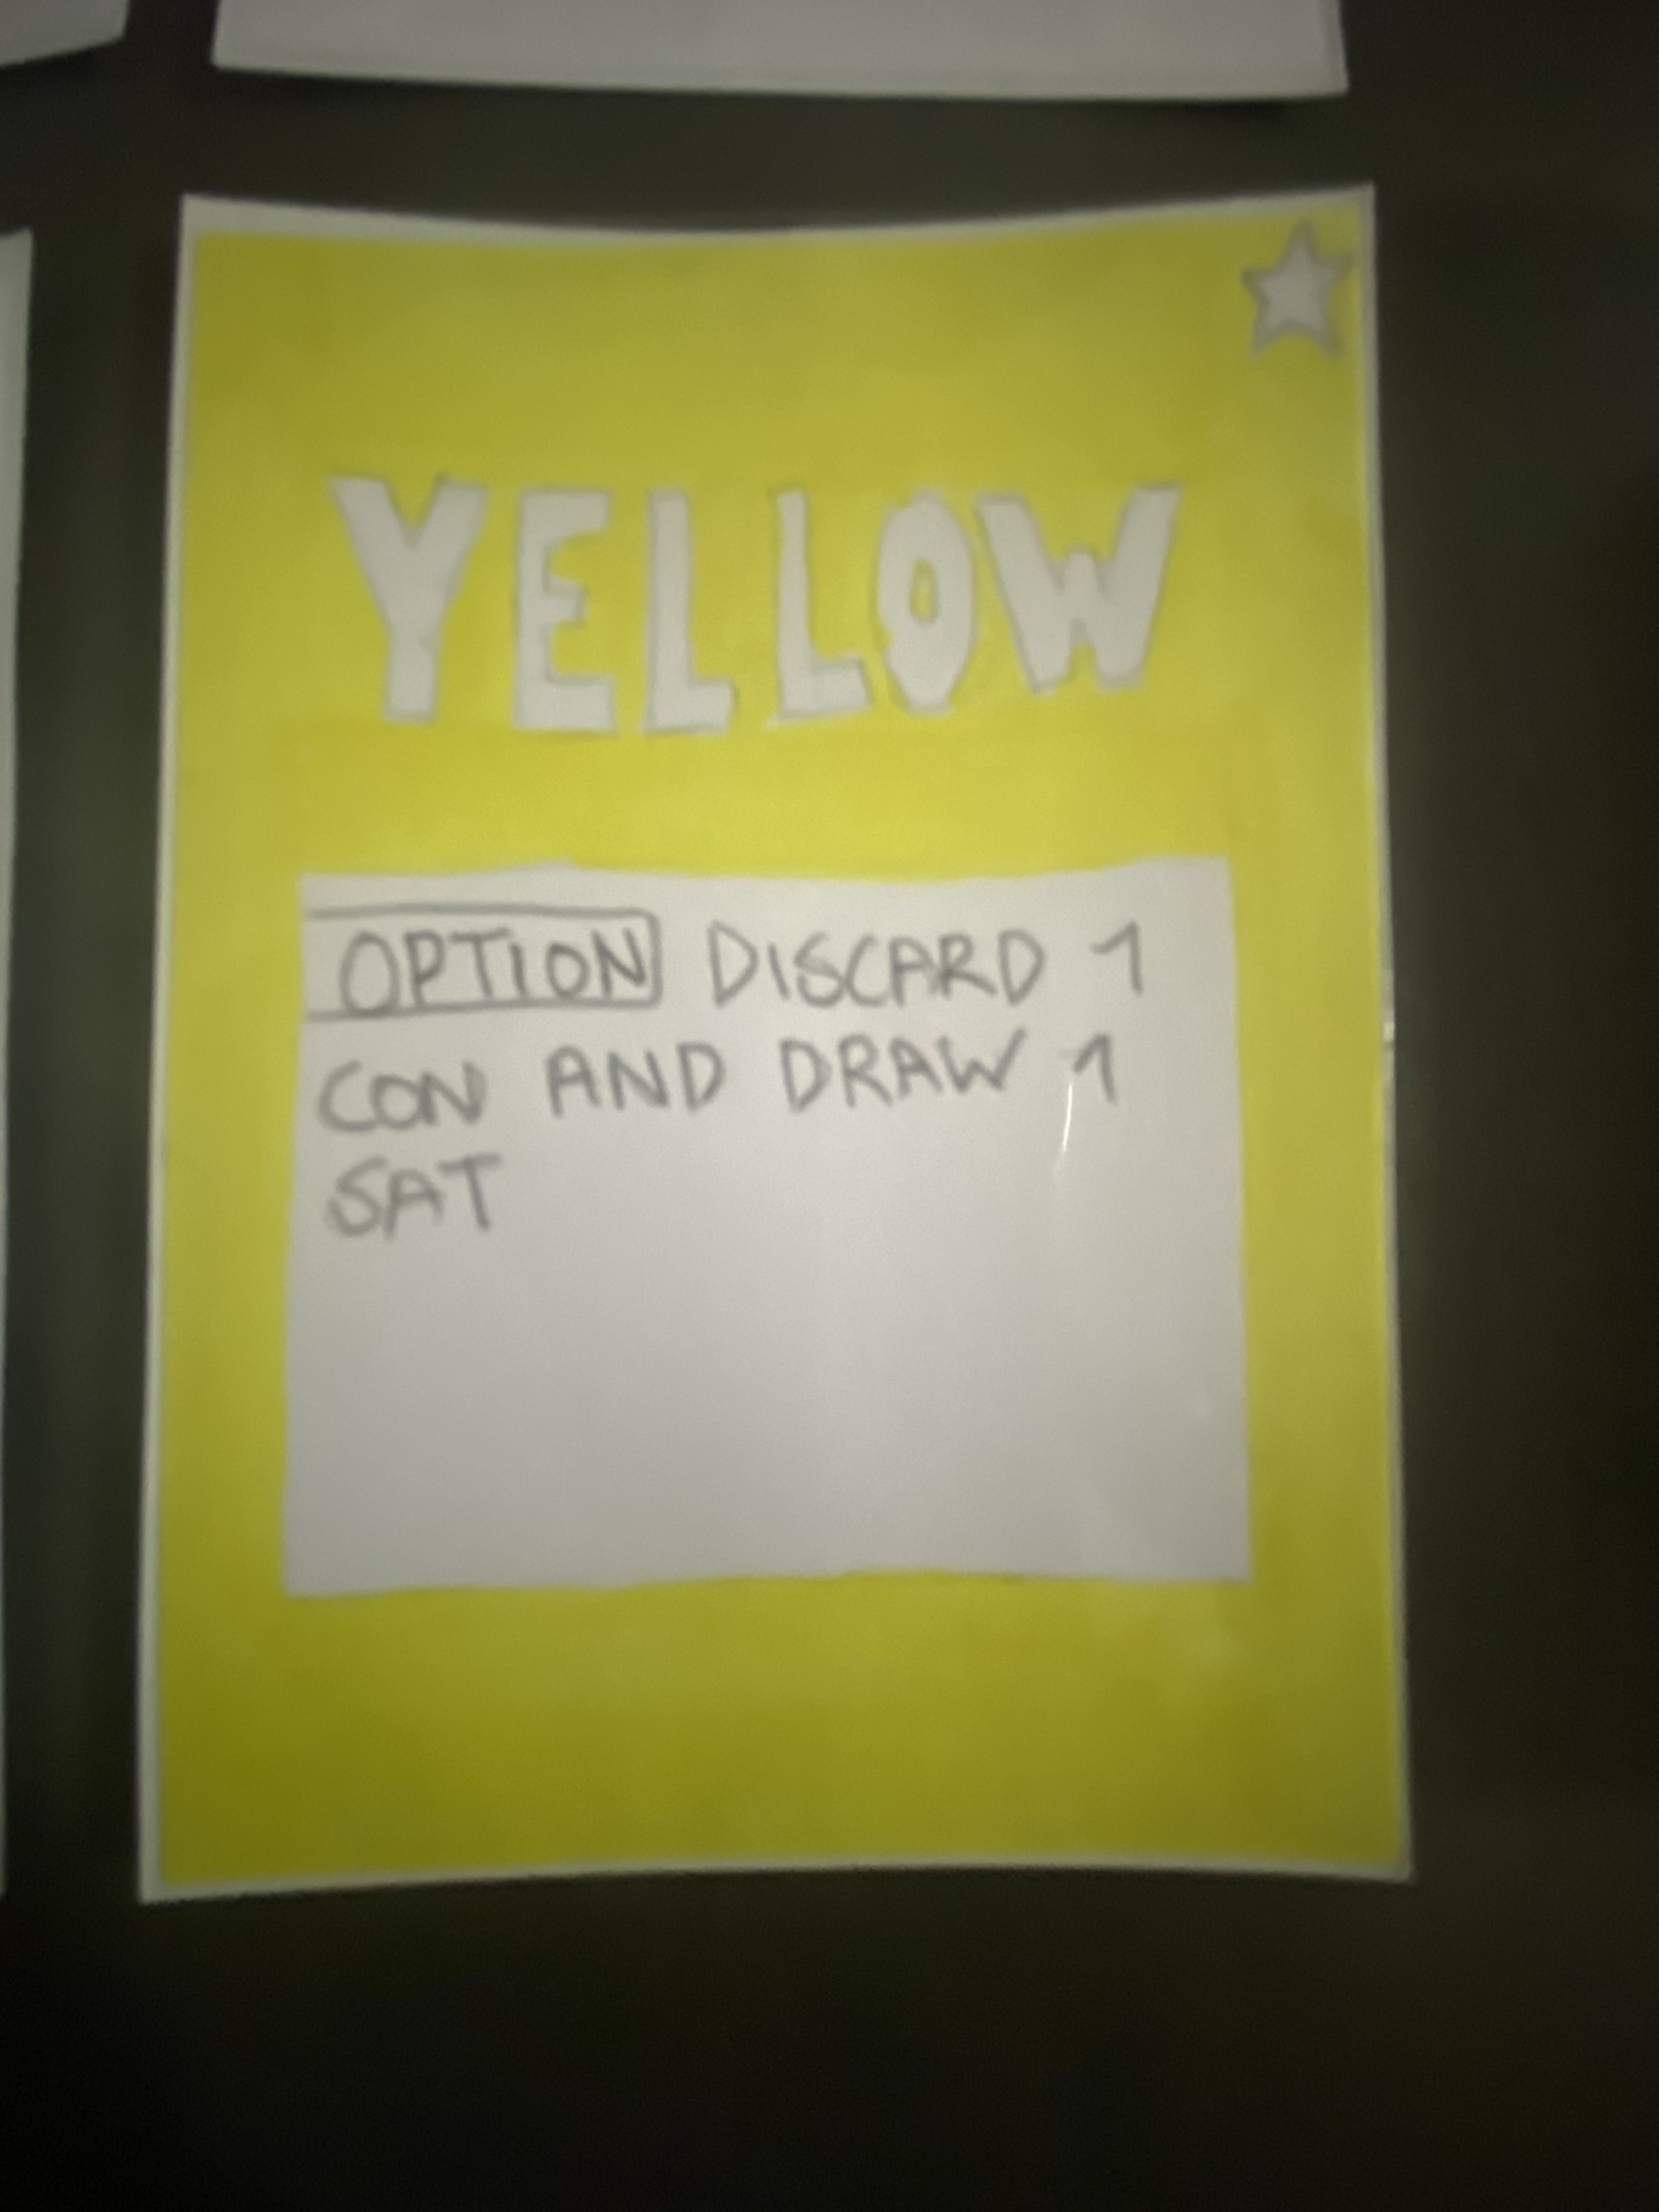 YELLOW
OPTION DISCARD 1
CON AND DRAW 1
SAT